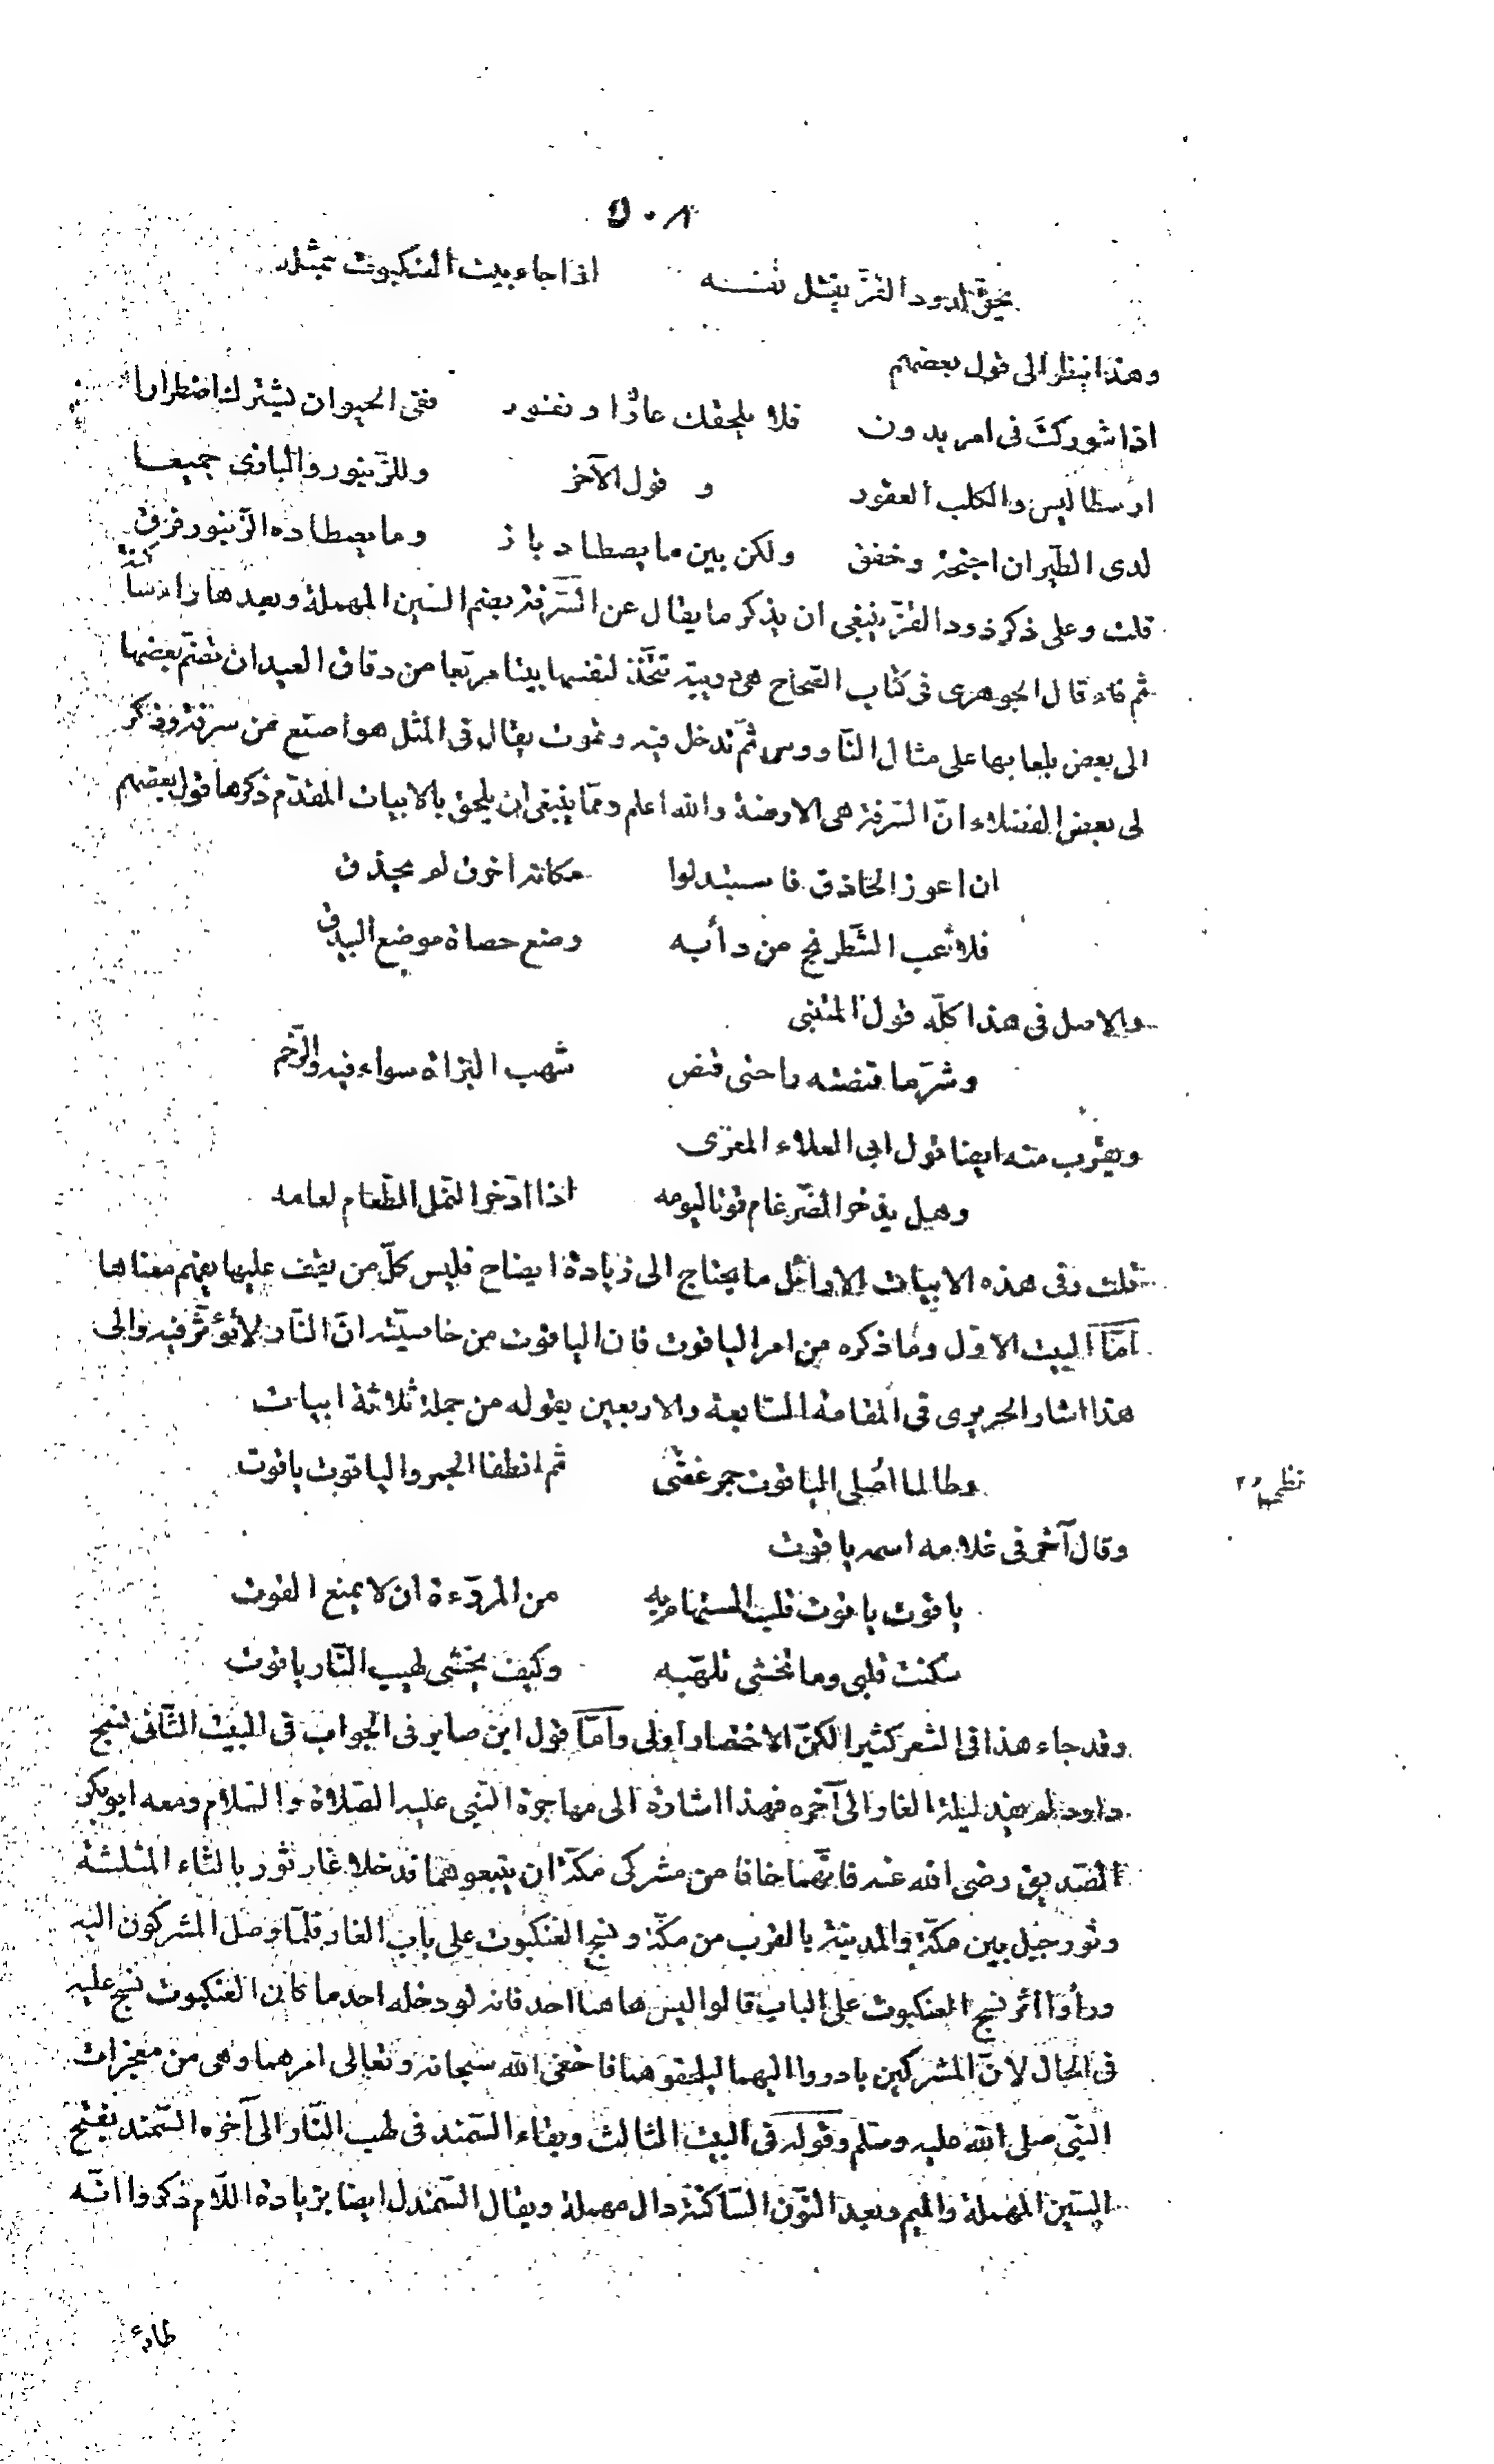 ٥٠٨
بحق لدود القز يقتل نفسه اذا جاء بيت العنكبوت بمثله
وهذا ينظر الى قول بعضهم
اذا شوركت فى امر بدون فلا يلحقك عار او نفور ففى الحيوان يشترك اضطرارا
ارسطاليس والكلب العقور و قول الآخر وللزّنبور والبازى جميعا
لدى الطّيران اجنحة وخفق ولكن بين ما يصطاد باز وما يصطاده الزّنبور فرق
قلت وعلى ذكر دود القزّ ينبغى ان يذكر ما يقال عن السّرفة بضم السين المهملة وبعدها راء ساكنة
ثم فاء قال الجوهرى فى كتاب الصّحاح هى دويبة تتّخذ لنفسها بيتا مربّعا من دقاق العيدان تضمّ بعضها
الى بعض بلعابها على مثال النّاووس ثمّ تدخل فيه وتموت يقال فى المثل هو اصنع من سرفة وذكر
لى بعض الفضلاء انّ السّرفة هى الارضة والله اعلم وممّا ينبغى ان يلحق بالابيات المقدّم ذكرها قول بعضهم
ان اعوز الحاذق فاستبدلوا مكانه اخرق لم يحذق
فلاعب الشّطرنج من دأبه وضع حصاة موضع البيدق
والاصل فى هذا كلّه قول المتنبى
وشرّ ما قنصته راحتى قنص شهب البزاة سواء فيه والرّخم
ويقرب منه ايضا قول ابى العلاء المعرّى
وهل يذخر الضّرغام قوتا ليومه اذا ادّخر النّمل الطّعام لعامه
قلت وفى هذه الابيات الاوائل ما يحتاج الى زيادة ايضاح فليس كلّ من يقف عليها يفهم معناها
امّا البيت الاوّل وما ذكره من امر الياقوت فان الياقوت من خاصيّته انّ النّار لا تؤثّر فيه والى
هذا اشار الحريرى فى المقامة السّابعة والاربعين بقوله من جملة ثلاثة ابيات
وطالما اُصلى الياقوت جمر غضى ثم انطفا الجمر والياقوت ياقوت
وقال آخر فى غلامه اسمه ياقوت
ياقوت ياقوت قلب المستهام به من المروّءة ان لا يمنع القوت
سكنت قلبى وما تخشى تلهّبه وكيف يخشى لهيب النّار ياقوت
وقد جاء هذا فى الشعر كثيرا لكنّ الاختصار اولى وامّا قول ابن صابر فى الجواب فى البيت الثّانى نسج
داود لم يفد ليلة الغار الى آخره فهذا اشارة الى مهاجرة النّبى عليه الصّلاة والسّلام ومعه ابو بكر
الصّديق رضى الله عنه فانّهما خافا من مشركى مكّة ان يتبعوهما فدخلا غار ثور بالثاء المثلثة
وثور جبل بين مكّة والمدينة بالقرب من مكّة ونسج العنكبوت على باب الغار فلمّا وصل المشركون اليه
ورأوا اثر نسج العنكبوت على الباب قالوا ليس هاهنا احد فانه لو دخله احد ما كان العنكبوت نسج عليه
فى الحال لانّ المشركين بادروا اليهما ليلحقوهما فاخفى الله سبحانه وتعالى امرهما وهى من معجزات
النّبى صلى الله عليه وسلّم وقوله فى البيت الثالث وبقاء السّمند فى لهب النّار الى آخره السّمند بفتح
السّين المهملة والميم وبعد النّون السّاكنة دال مهملة ويقال السّمندل ايضا بزيادة اللّام ذكروا انّه
طائر